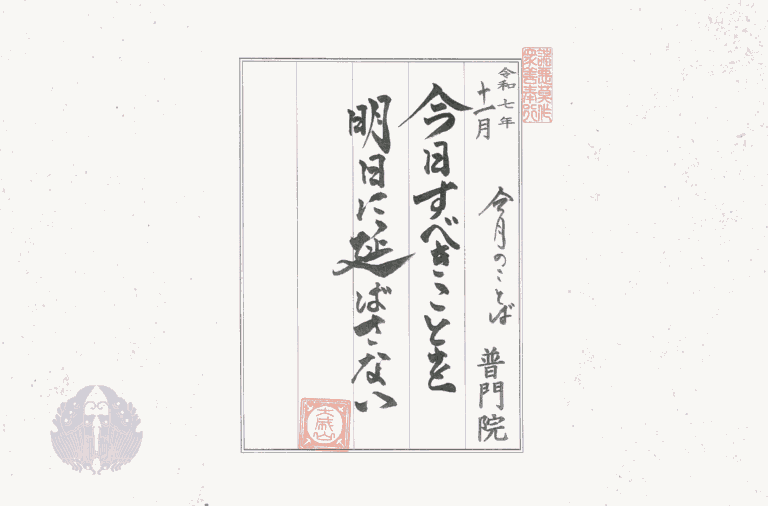 諸悪莫作
衆善奉行
令和七年
十一月
今月のことば
普門院
今日すべきことを
明日に延ばさない